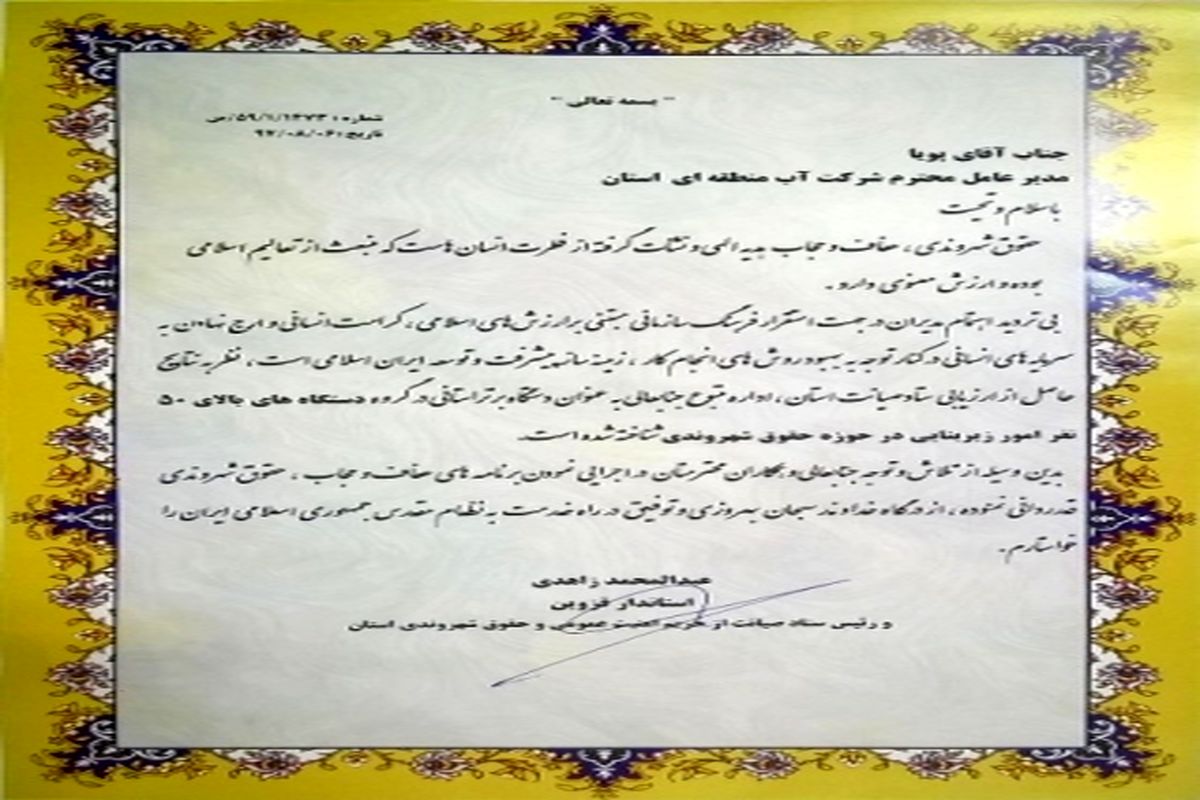 " بسمه تعالی "
شماره: ۵۹/۱/۱۴۷۳/ص
تاریخ: ۹۷/۰۸/۰۶
جناب آقای پویا
مدیر عامل محترم شرکت آب منطقه ای استان
با سلام و تحیت
حقوق شهروندی ، عفاف و حجاب هدیه الهی و نشات گرفته از فطرت انسان هاست که منبعث از تعالیم اسلامی
بوده و ارزش معنوی دارد .
بی تردید اهتمام مدیران در جهت استقرار فرهنگ سازمانی مبتنی بر ارزش های اسلامی ، کرامت انسانی و ارج نهادن به
سرمایه های انسانی در کنار توجه به بهبود روش های انجام کار ، زمینه ساز پیشرفت و توسعه ایران اسلامی است ، نظر به نتایج
حاصل از ارزیابی ستاد صیانت استان ، اداره متبوع جنابعالی به عنوان دستگاه برتر استانی در گروه دستگاه های بالای ۵۰
نفر امور زیربنایی در حوزه حقوق شهروندی شناخته شده است.
بدین وسیله از تلاش و توجه جنابعالی و همکاران محترمتان در اجرایی نمودن برنامه های عفاف و حجاب ، حقوق شهروندی
قدردانی نموده ، از درگاه خداوند سبحان بهروزی و توفیق در راه خدمت به نظام مقدس جمهوری اسلامی ایران را
خواستارم .
عبدالمحمد زاهدی
استاندار قزوین
و رئیس ستاد صیانت از حریم امنیت عمومی و حقوق شهروندی استان